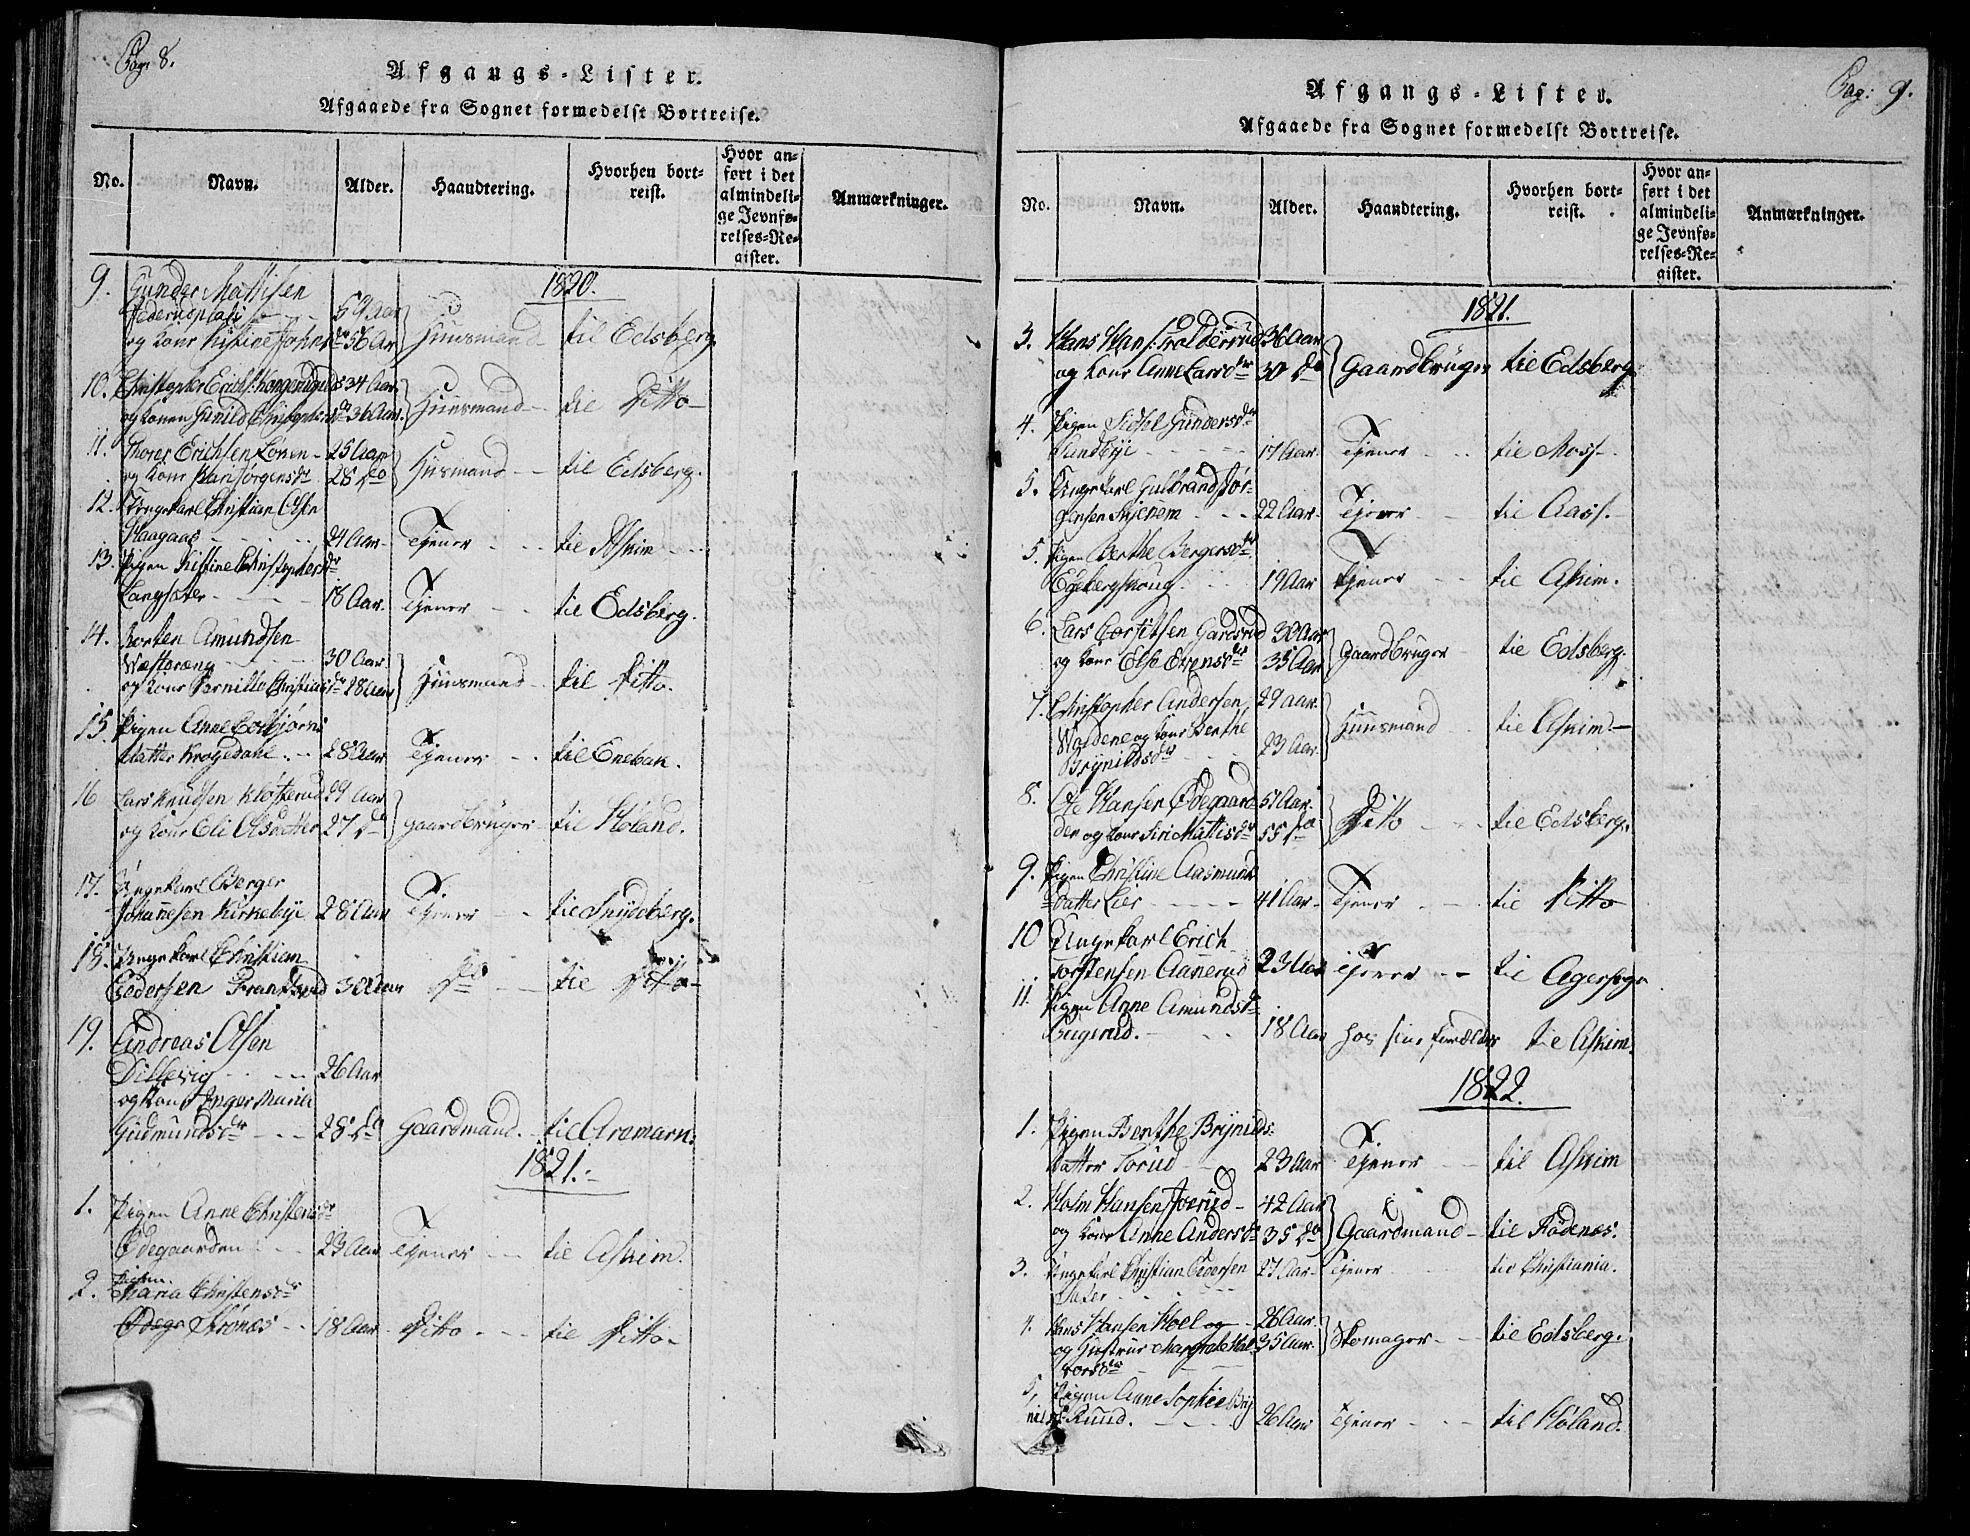 Pag: 8.
Afgangs-Lister.
Afgaaede fra Sognet formedelst Bortreise.
No. Navn. Alder. Haandtering. Hvorhen bortreist. Hvor anført i det almindelige Jevnførelses-Register. Anmærkninger.
1820.
9. Gunder Mattisen
59 Aar
og Kone Kistine Johnsdr 56 Aar Huusmand til Edsberg
10. Christopher Erichs: 34 Aar
og Konen Gunild Christophersdr 36 Aar. Huusmand til Ditto
11. Thorer Erichsen Lønen 25 Aar
og Kone Kari Jørgensdr 28 do Husmand til Edsberg.
12. Ungekarl Christian Olsen
Haagaas 24 Aar Tjener til Askim
13. Pigen Kistine Christophersdr
Langsæter 18 Aar. Tjener til Edsberg.
14. Morten Amundsen
Wæstereng 30 Aar
og Kone Pernille Christiansdr 28 Aar Huusmand til Ditto.
15. Pigen Anne Torbjørns
datter Krogedahl 28 Aar Tjener til Enebak.
16 Lars Knudsen Kløsterud 29 Aar
og Kone Eli Olsdatter 27 do gaardbruger til Høland.
17. Ungekarl Berger
Johannesen Kirkebye 28 Aar Tjener til Snydeberg.
18. Ungekarl Christian
Pedersen 30 Aar do til Ditto
19. Andreas Olsen
Dillevig 26 Aar
og Kone Inger Maria
Gudmundsdr 28 do Gaardmand til Aremark.
1821.
1. Pigen Anne Christensdr
Ødegaarden 23 Aar Tjener til Askim.
2. Pigen
Maria Christensdr
Strønæs 18 Aar Ditto til Ditto
Pag: 9.
Afgangs-Lister.
Afgaaede fra Sognet formedelst Bortreise.
No. Navn. Alder. Haandtering. Hvorhen bortreist. Hvor anført i det almindelige Jevnførelses-Register. Anmærkninger.
1821.
3. Hans Hans: Trolderud 36 Aar
og Kone Anne Larsdr 30 do Gaardbruger til Edsberg
4. Pigen Sidsel Gundersdr
Sundbye 17 Aar. Tjener til Moss.
5. Ungekarl Gulbrand Jør-
gensen Skjenem 22 Aar Tjener til Aass.
5. Pigen Berthe Bergersdr
Egebergshoug 19 Aar Tjener til Askim.
6. Lars Torstensen Gardsrud 30 Aar
og Kone Else Evensdr 35 Aar Gaardbruger til Edsberg.
7. Christopher Andersen 29 Aar.
Waldene og Kone Berthe
Brynildsdr 23 Aar. Huusmand til Askim
8. Ole Hansen Ødegaar- 51 Aar.
den og Kone Siri Mattisdr 55 do Ditto til Edsberg.
9. Pigen Christine Aasmund-
datter Lier 41 Aar Tjener til Ditto
10 Ungekarl Erich
Torstensen Aanerud 23 Aar Tjener til Agersogn
11. Pigen Anne Amundsdr
Bugerud. 18 Aar hos sine Forældre til Askim.
1822.
1. Pigen Berthe Brynilds:
datter Torud 23 Aar Tjener til Askim
2. Holm Hansen Joerud 42 Aar
og Kone Anne Andersdr 35 do Gaardmand til Rødenæs.
3. Ungekarl Christian Pedersen 27 Aar Tjener til Christiania.
4. Hans Hansen Hoel og 26 Aar.
og Hustrue Margrete Hal- 35 Aar. Skomager til Edsberg.
vorsdr
5, Pigen Anne Sophie Bry
nildsdr Ruud. 26 Aar Tjener til Høland.